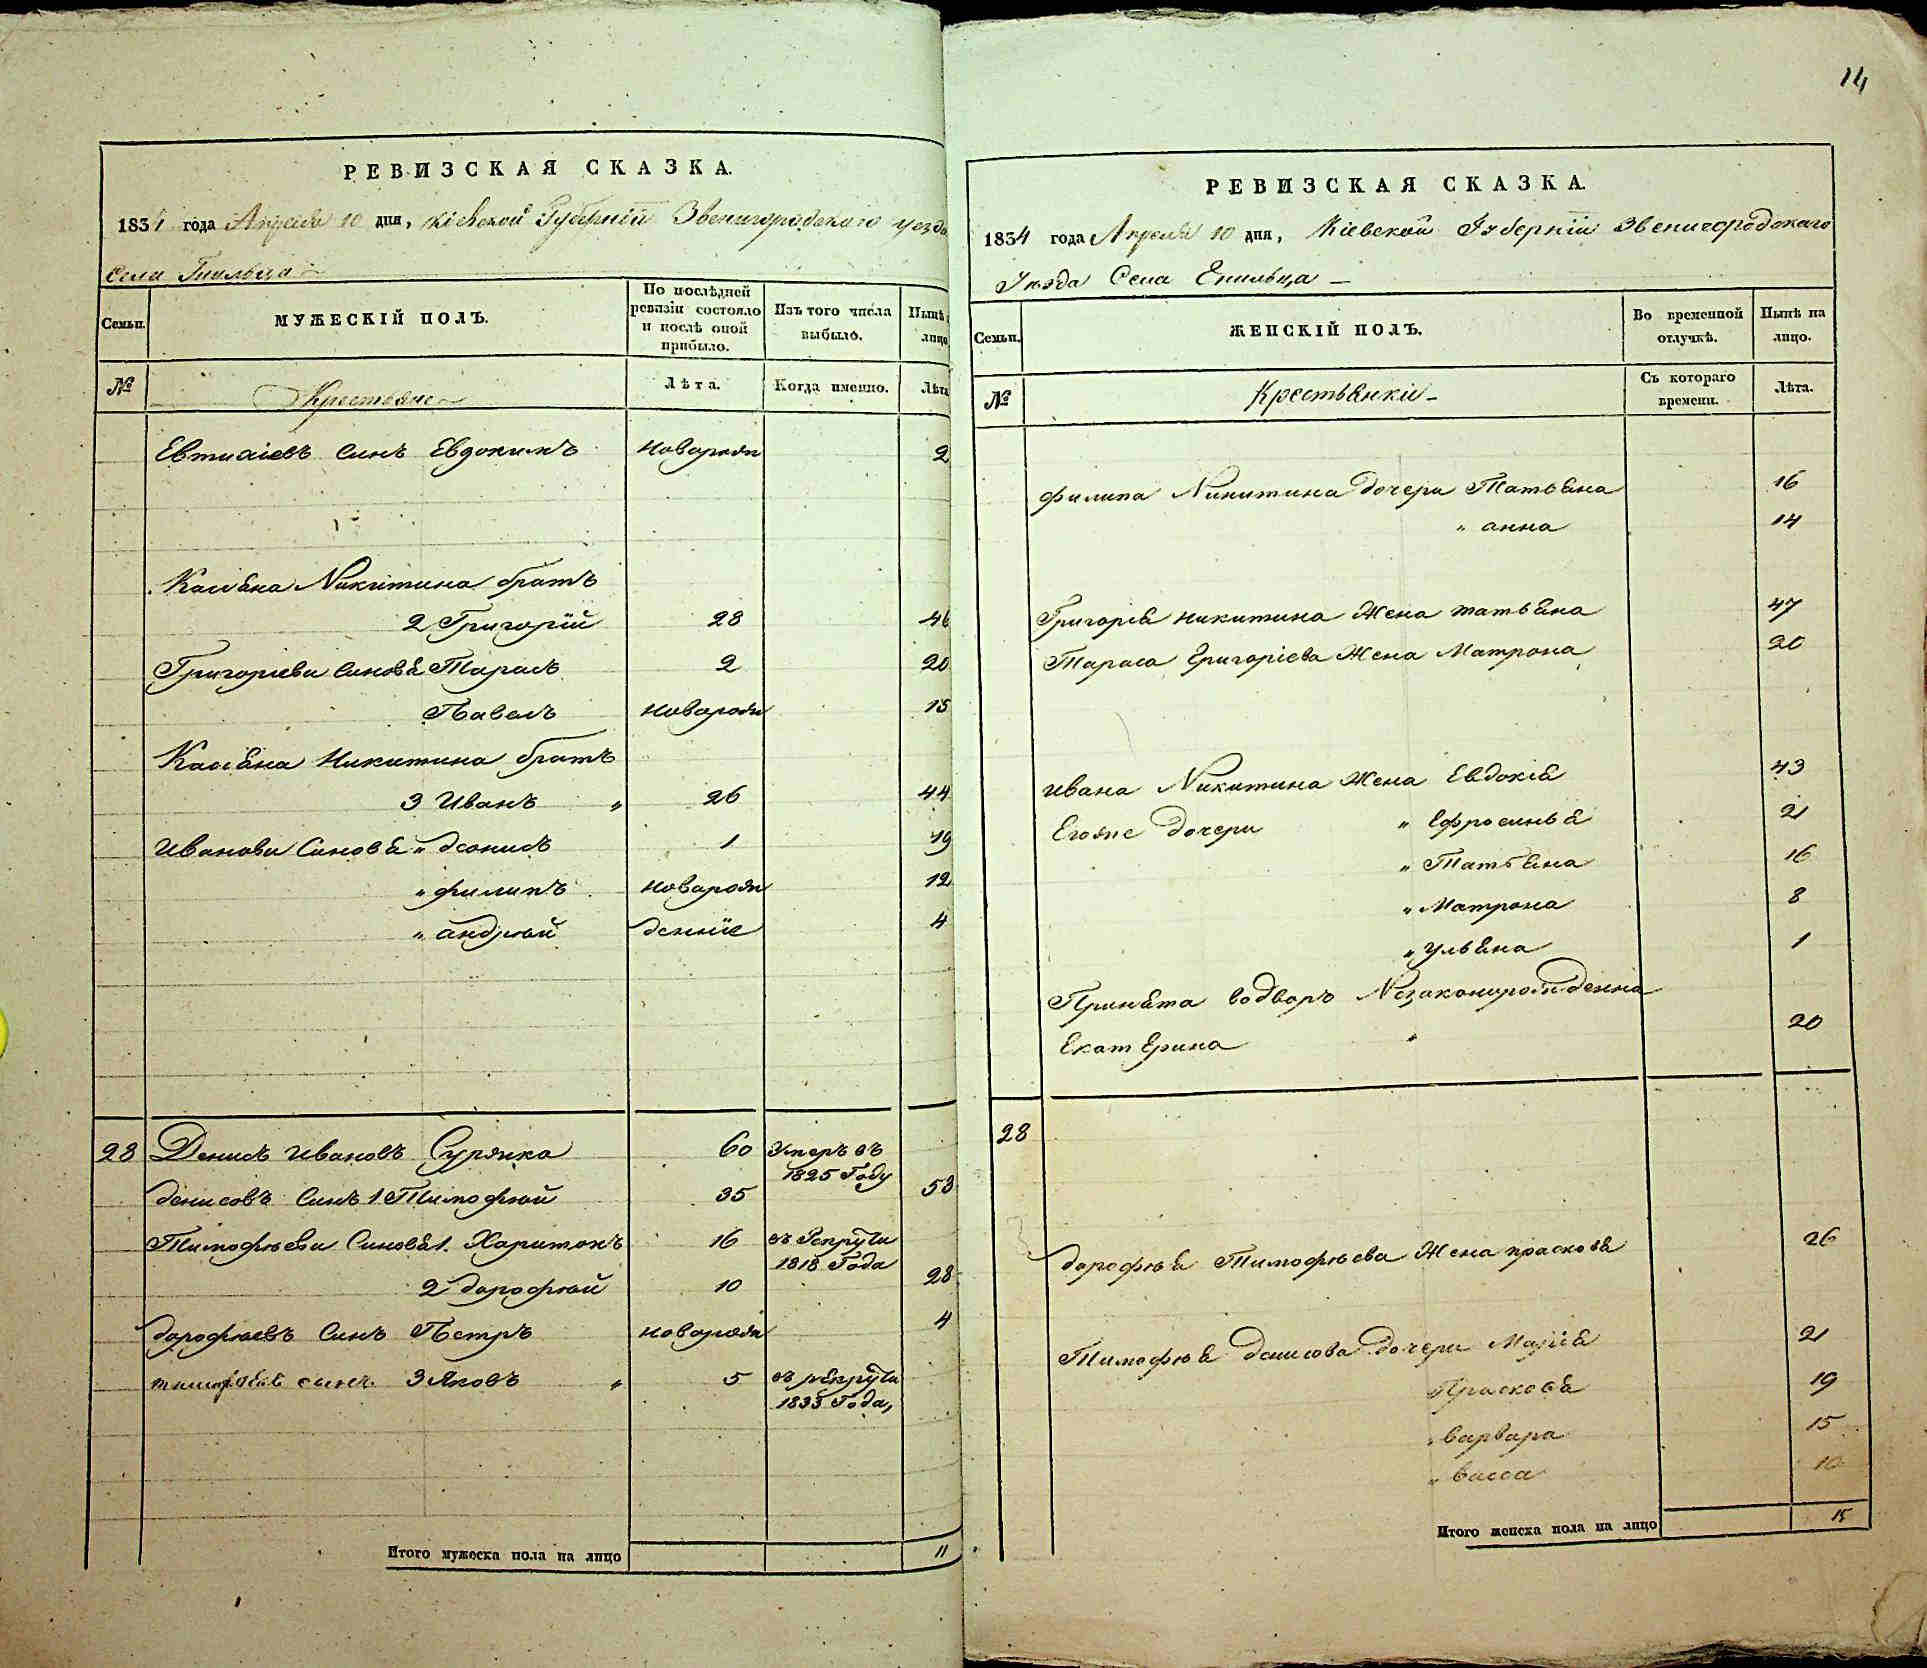 РЕВИЗСКАЯ СКАЗКА.
1834 года Апреля 10 дня, Кіевской Губерніи Звенигородского уезда
Села Гнильца
Семьи.
МУЖЕСКІЙ ПОЛЪ.
По послѣдней ревизіи состояло и послѣ оной прибыло.
Изъ того числа выбыло.
Нынѣ лицо
№
Крестьяне
Лѣта.
Когда именно.
Лѣта
Евтиѳіевъ Синъ Евдокимъ новорожд 2
Касіяна Никитина братъ
2 Григорій 28 46
Григоріеви Синовя Тарасъ 2 20
Павелъ новорожд 15
Касіяна Никитина братъ
3 Иванъ " 26 44
Иванови Синовя " Деонисъ 1 19
" филипъ новорожд 12
" андрѣй денніе 4
28 Денисъ Ивановъ 60 Умеръ въ
1825 Году
денисовъ Синъ 1 Тимофѣй 35 53
Тимофѣеви Синовя 1. Харитонъ 16 въ Рекруты
1818 Года
2 дорофѣй 10 28
дорофѣевъ Синъ Петръ новорожд 4
тимофѣевъ синъ 3 Яковъ " 5 въ рекруты
1833 Года,
Итого мужеска пола на лицо 11
14
РЕВИЗСКАЯ СКАЗКА.
1834 года Апреля 10 дня, Кіевской Губерніи Звенигородского
Уѣзда Села Гнильца
Семьи.
ЖЕНСКІЙ ПОЛЪ.
Во временной отлучкѣ.
Нынѣ на лицо.
№
Крестьянкіи
Съ котораго времени.
Лѣта.
филипа Никитина дочери Татьяна 16
" анна 14
Григорія никитина Жена татьяна 47
Тараса Григоріева Жена Матрона 20
Ивана Никитина Жена Евдокія 43
Егояже дочери " Ефросинья 21
" Татьяна 16
" Матрона 8
" Ульяна 1
Принята водворъ Незаконнорожденна
Екатерина " 20
28
дорофѣя Тимофѣева Жена прасковя 26
Тимофѣя Денисова дочери Марія 21
Прасковя 19
" Варвара 15
" Васса 10
Итого женска пола на лицо 15